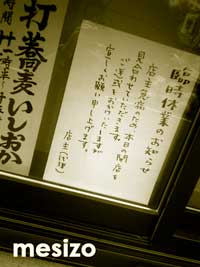 臨時休業のお知らせ
店主急病のため、本日の開店を
見合わせていただきます。
ご迷惑をおかけいたしますが
宜しくお願い申し上げます。
店主(代理)
打蕎麦いしおか
mesizo